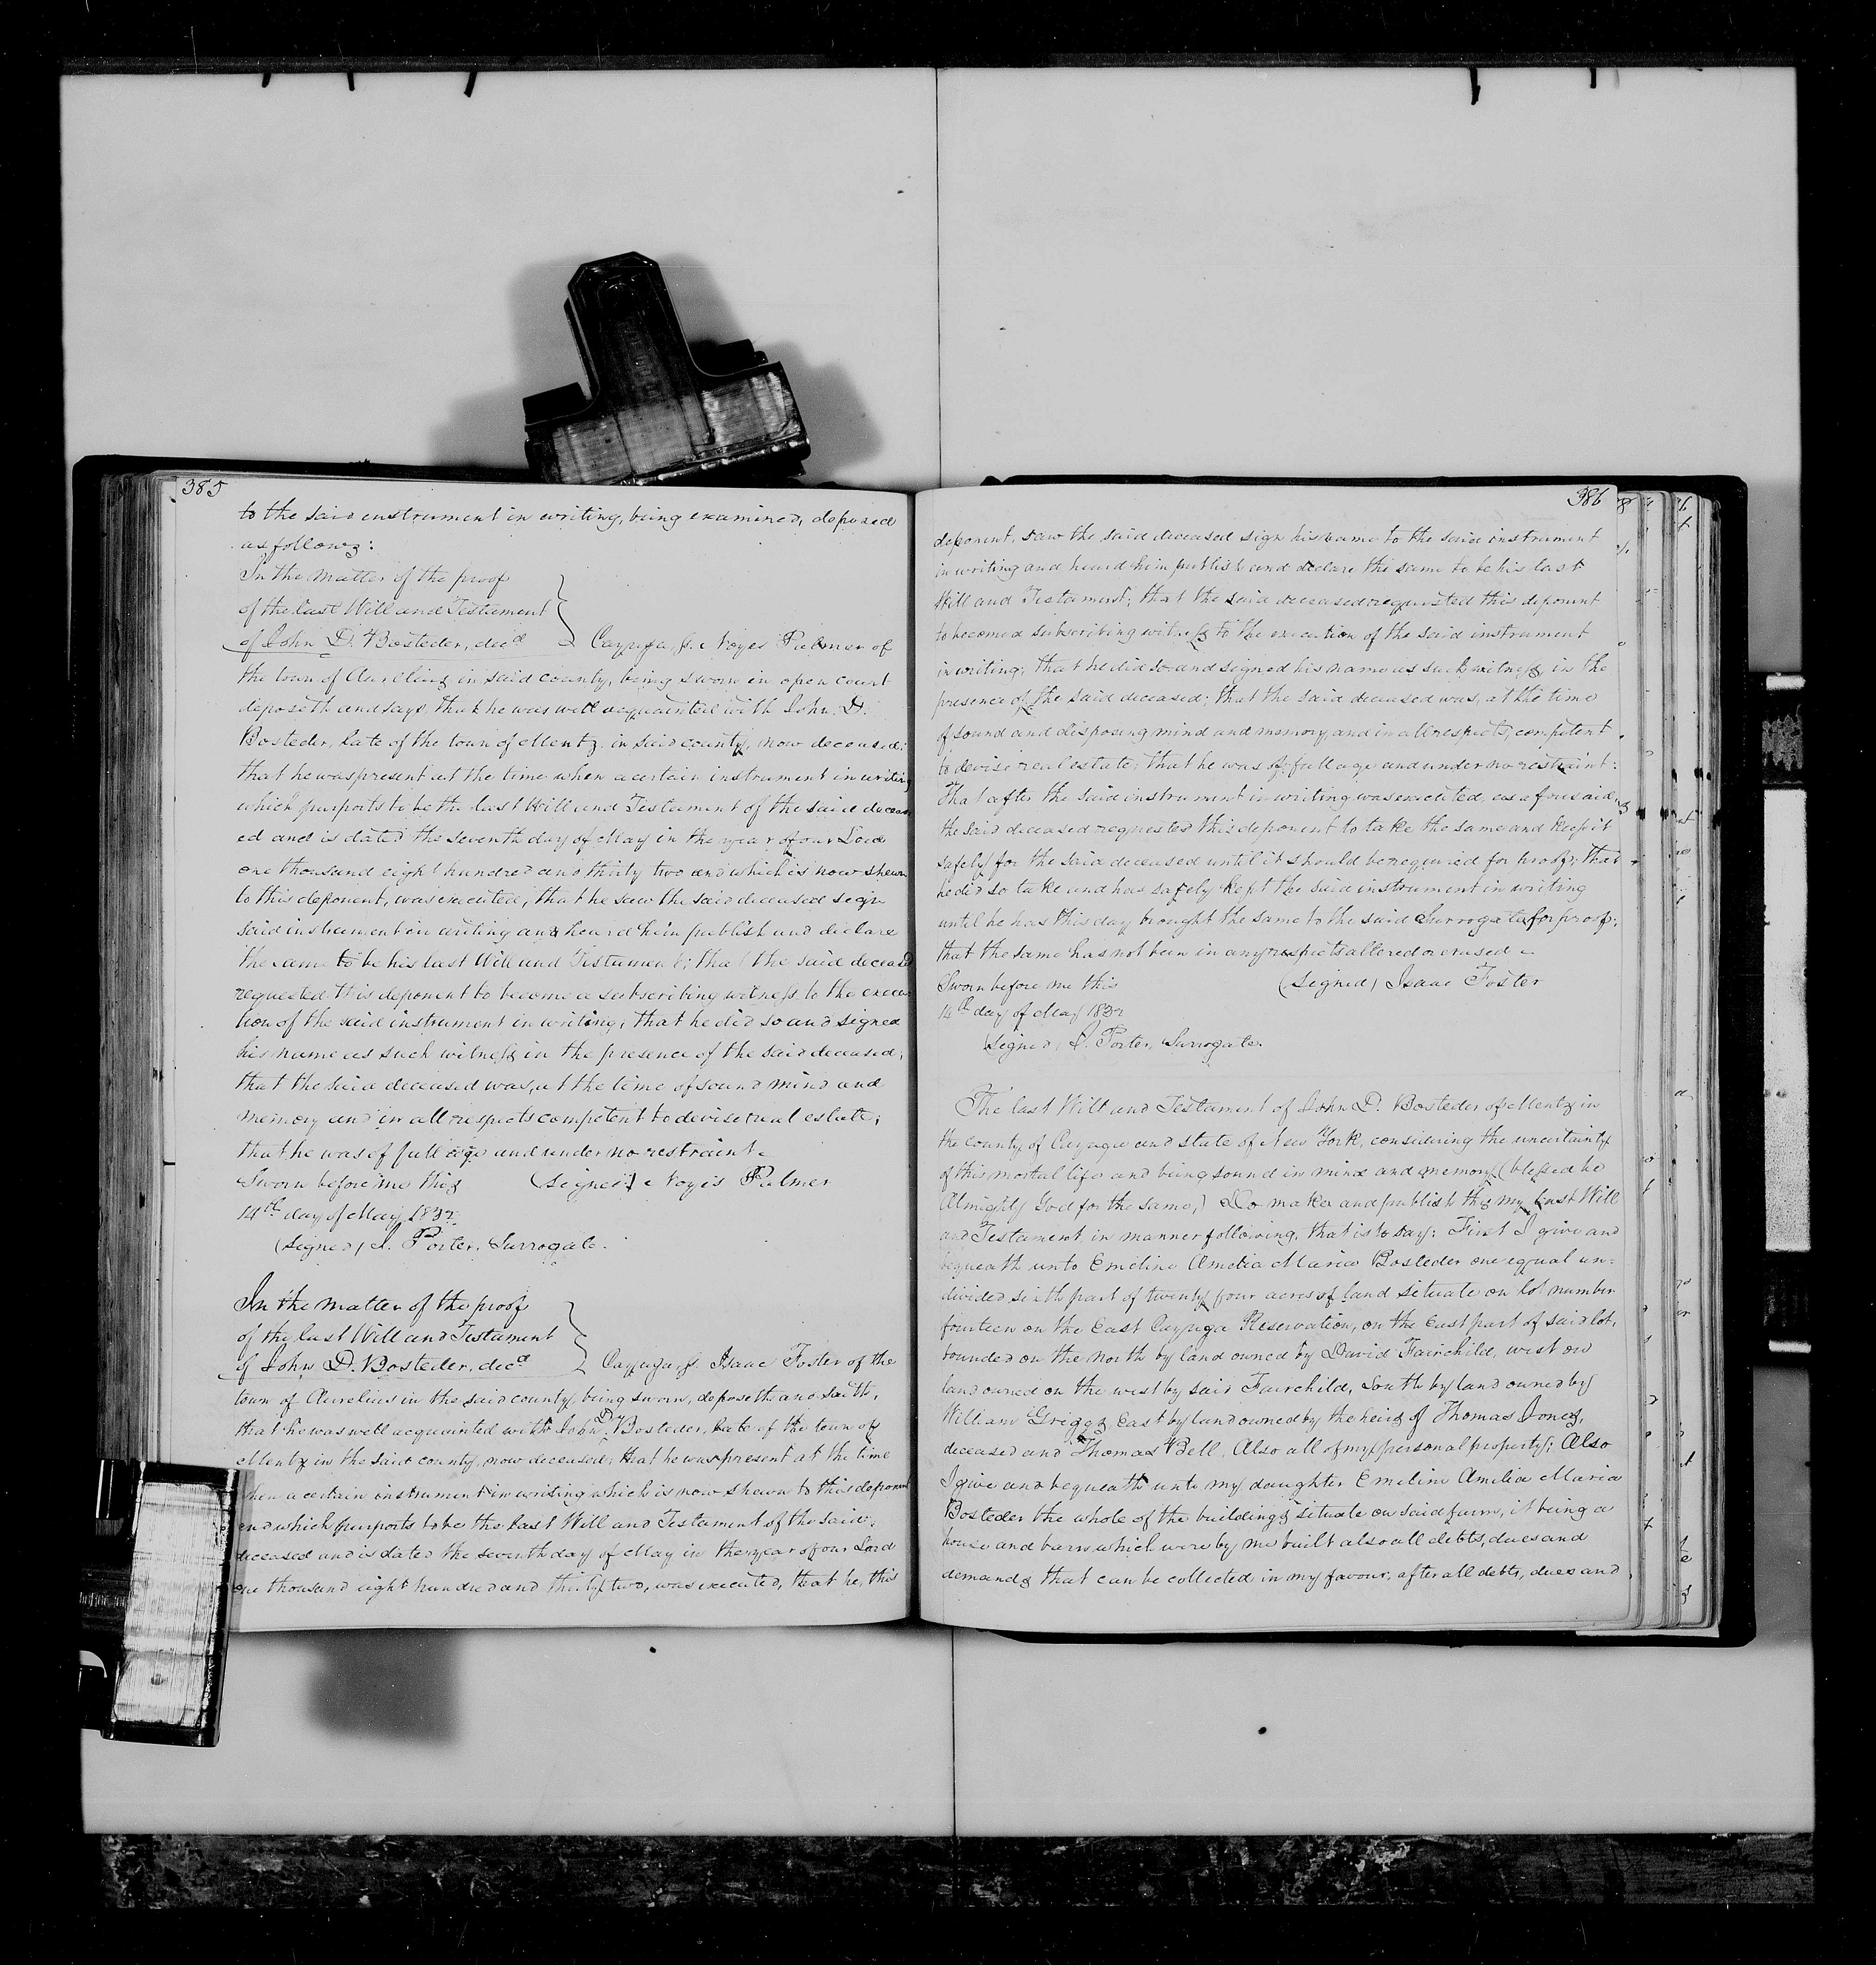 385
to the said instrument in writing, being examined, deposed
as follows:
In the Matter of the proof
of the last Will and Testament
of John D. Bosteder, decd } Cayuga, ss. Noyes Palmer of
the town of Aurelius in said county, being sworn in open court
deposeth and says, that he was well acquainted with John D.
Bosteder, late of the town of Mentz in said county, now deceased;
that he was present at the time when a certain instrument in writing
which purports to be the last Will and Testament of the said deceas
ed and is dated the seventh day of May in the year of our Lord
one thousand eight hundred and thirty two and which is now shewn
to this deponent, was executed, that he saw the said deceased sign
said instrument in writing and heard him publish and declare
the same to be his last Will and Testament; that the said deceased
requested this deponent to become a subscribing witness to the execu
tion of the said instrument in writing; that he did so and signed
his name as such witness in the presence of the said deceased;
that the said deceased was, at the time of sound mind and
memory and in all respects competent to devise real estate;
that he was of full age and under no restraint.
Sworn before me this (Signed) Noyes Palmer
14th day of May 1832.
(Signed) I. Porter, Surrogate.
In the matter of the proof
of the last Will and Testament
of John D. Bosteder, decd } Cayuga, ss. Isaac Foster of the
town of Aurelius in the said county, being sworn, deposeth and saith,
that he was well acquainted with John D. Bosteder, late of the town of
Mentz in the said county, now deceased; that he was present at the time
when a certain instrument in writing which is now shewn to this deponent
and which purports to be the last Will and Testament of the said
deceased and is dated the seventh day of May in the year of our Lord
one thousand eight hundred and thirty two, was executed, that he, this
386
deponent, saw the said deceased sign his name to the said instrument
in writing and heard him publish and declare the same to be his last
Will and Testament; that the said deceased requested this deponent
to become a subscribing witness to the execution of the said instrument
in writing; that he did so and signed his name as such witness, in the
presence of the said deceased; that the said deceased was, at the time
of sound and disposing mind and memory and in all respects, competent
to devise real estate; that he was of full age and under no restraint:
That after the said instrument in writing was executed, as aforesaid,
the said deceased requested this deponent to take the same and keep it
safely for the said deceased until it should be required for proof; that
he did so take and has safely kept the said instrument in writing
until he has this day brought the same to the said Surrogate for proof;
that the same has not been in any respects altered or erased
Sworn before me this (Signed) Isaac Foster
14th day of May 1832
Signed, I. Porter, Surrogate.
The last Will and Testament of John D. Bosteder of Mentz in
the county of Cayuga and state of New York, considering the uncertainty
of this mortal life and being sound in mind and memory (blessed be
Almighty God for the same,) Do make and publish this my last Will
and Testament in manner following, that is to say: First I give and
bequeath unto Emeline Amelia Maria Bosteder one equal un=
divided sixth part of twenty four acres of land situate on lot number
fourteen on the East Cayuga Reservation, on the East part of said lot,
bounded on the North by land owned by David Fairchild, west on
land owned on the west by said Fairchild, South by land owned by
William Griggs, East by land owned by the heirs of Thomas Jones,
deceased and Thomas Bell, Also all of my personal property; Also
I give and bequeath unto my daughter Emeline Amelia Maria
Bosteder the whole of the buildings situate on said farm, it being a
house and barn which were by me built also all debts, dues and
demands that can be collected in my favour, after all debts, dues and